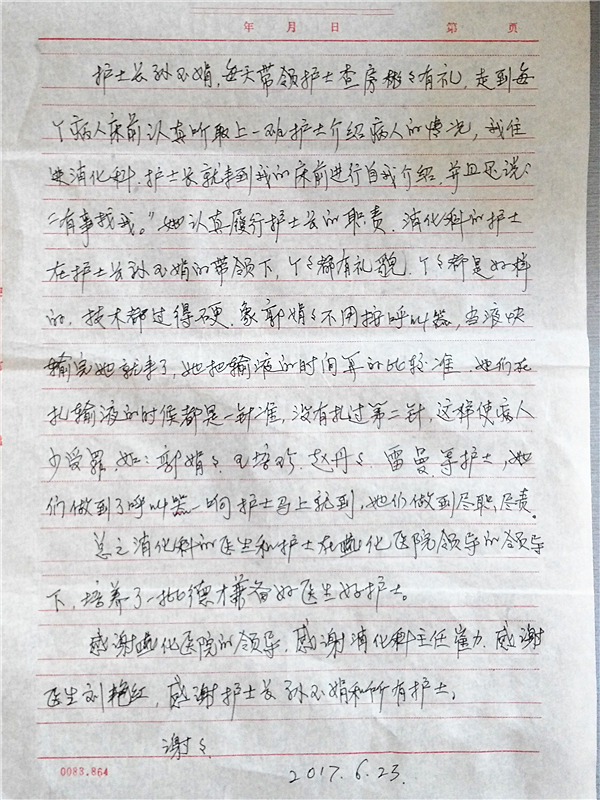 年 月 日 第 页
护士长孙玉娟,每天带领护士查房彬々有礼,走到每
个病人床前认真听取上一班护士介绍病人的情况,我住
进消化科.护士长就来到我的床前进行自我介绍.并且还说:
“有事找我。”她认真履行护士长的职责.消化科的护士
在护士长孙玉娟的带领下,个々都有礼貌.个々都是好样
的.技术都过得硬.象郭娟々不用按呼叫器,当液快
输完她就来了,她把输液的时间算的比较准.她们在
扎输液的时候都是一针准,没有扎过第二针,这样使病人
少受罪.如:郭娟々.王培珍.赵丹々.雷曼等护士,她
们做到了呼叫器一响护士马上就到,她们做到尽职,尽责。
总之消化科的医生和护士在燕化医院领导的领导
下,培养了一批德才兼备好医生好护士。
感谢燕化医院的领导.感谢消化科主任崔力.感谢
医生刘艳红,感谢护士长孙玉娟和所有护士,
谢々.
0083.864
2017.6.23.